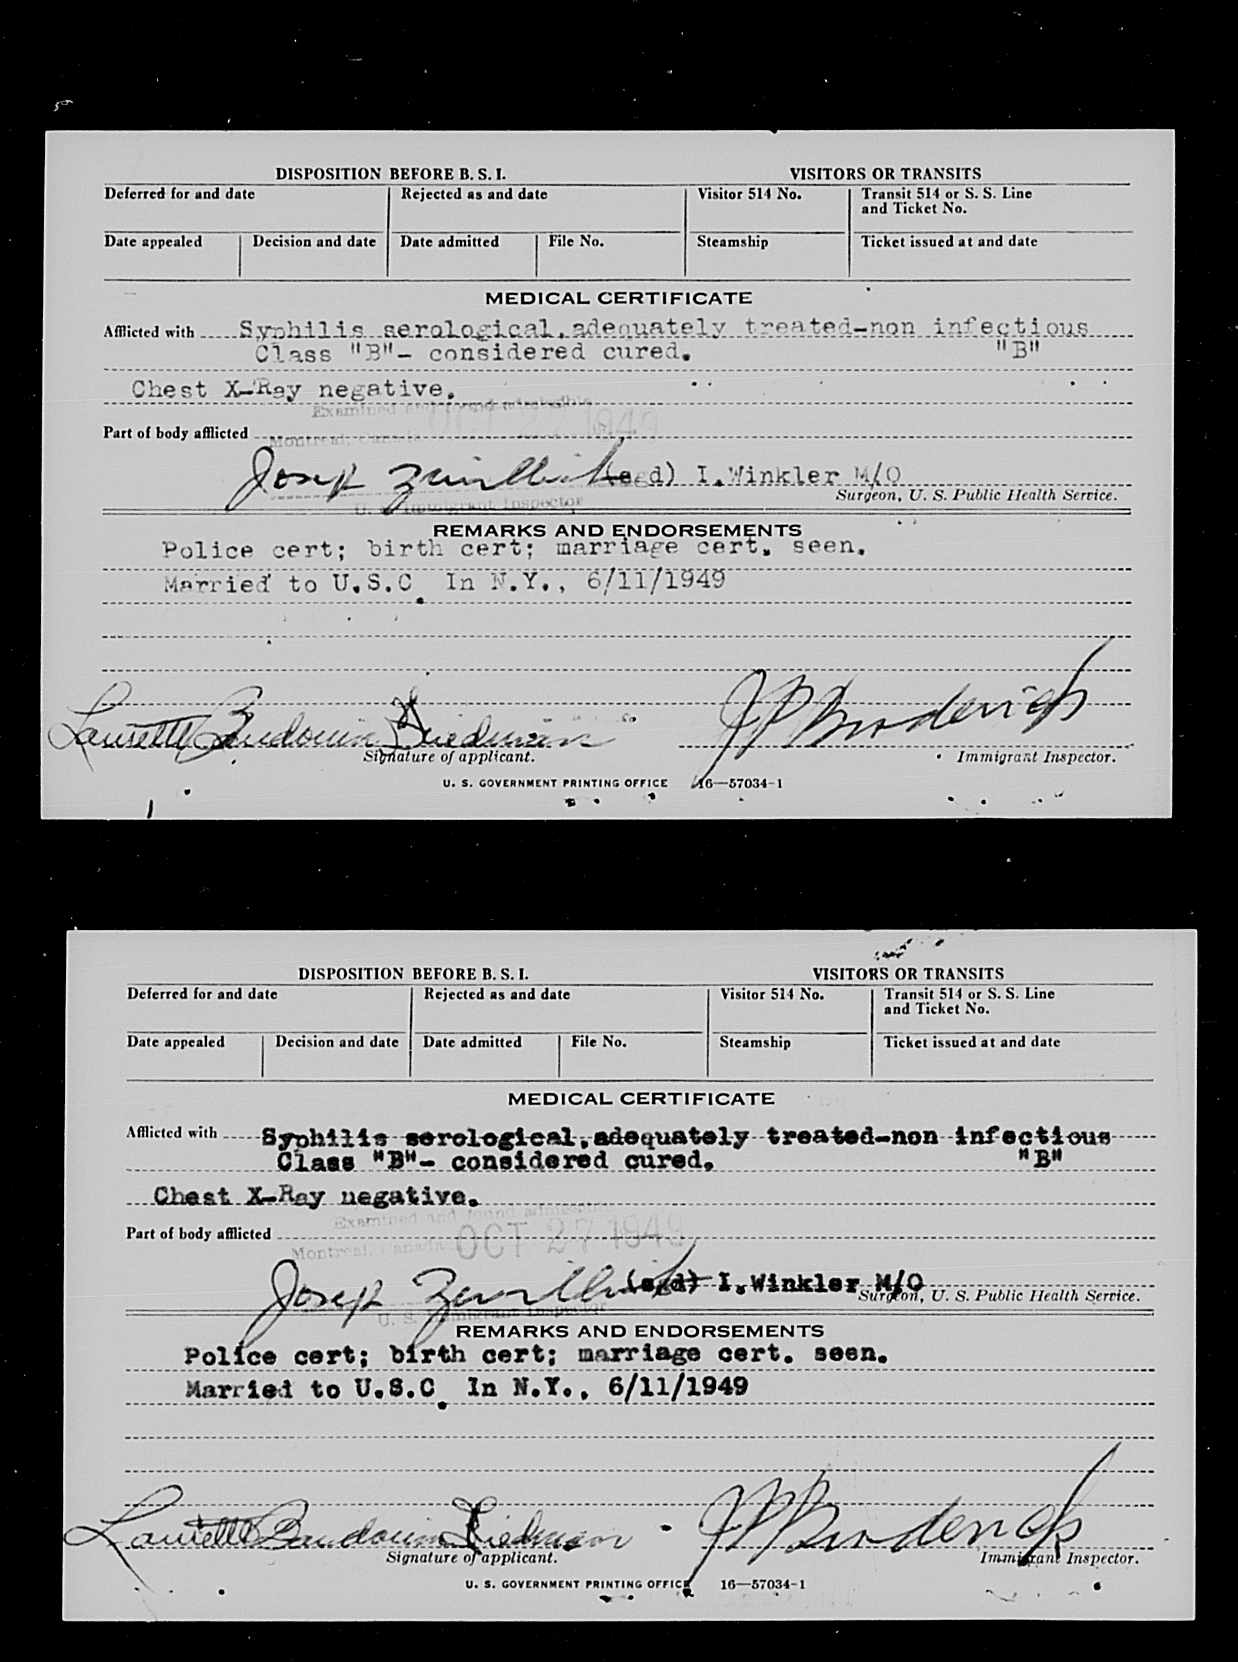 DISPOSITION BEFORE B. S. I.
VISITORS OR TRANSITS
Deferred for and date
Rejected as and date
Visitor 514 No.
Transit 514 or S. S. Line
and Ticket No.
Date appealed
Decision and date
Date admitted
File No.
Steamship
Ticket issued at and date
MEDICAL CERTIFICATE
Afflicted with Syphilis serological,adequately treated-non infectious
Class "B"- considered cured. "B"
Chest X-Ray negative.
Examined and found admissible
Part of body afflicted
Montreal, Canada OCT 27 1949
Josep (sgd) I.Winkler M/O
Surgeon, U. S. Public Health Service.
U. S. Immigrant Inspector
REMARKS AND ENDORSEMENTS
Police cert; birth cert; marriage cert. seen.
Married to U.S.C. In N.Y., 6/11/1949
Laurette Baudouin Friedman
J P Broderick
Signature of applicant.
Immigrant Inspector.
U. S. GOVERNMENT PRINTING OFFICE 16—57034-1
DISPOSITION BEFORE B. S. I.
VISITORS OR TRANSITS
Deferred for and date
Rejected as and date
Visitor 514 No.
Transit 514 or S. S. Line
and Ticket No.
Date appealed
Decision and date
Date admitted
File No.
Steamship
Ticket issued at and date
MEDICAL CERTIFICATE
Afflicted with Syphilis serological,adequately treated-non infectious
Class "B"- considered cured. "B"
Chest X-Ray negative.
Examined and found admissible
Part of body afflicted
Montreal, Canada OCT 27 1949
Josep (sgd) I.Winkler M/O
Surgeon, U. S. Public Health Service.
U. S. Immigrant Inspector
REMARKS AND ENDORSEMENTS
Police cert; birth cert; marriage cert. seen.
Married to U.S.C. In N.Y., 6/11/1949
Laurette Baudouin Friedman
J P Broderick
Signature of applicant.
Immigrant Inspector.
U. S. GOVERNMENT PRINTING OFFICE 16—57034-1